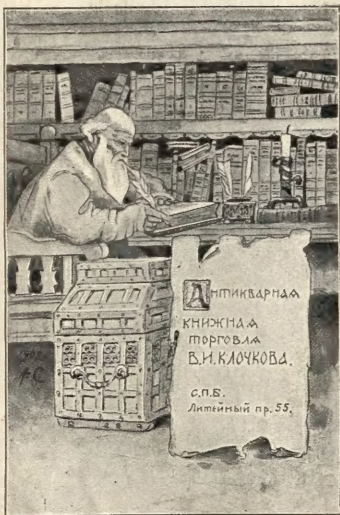 Антикварная
книжная
торговля
В.И.Клочкова.
С.П.Б.
Литейный пр. 55.
АС